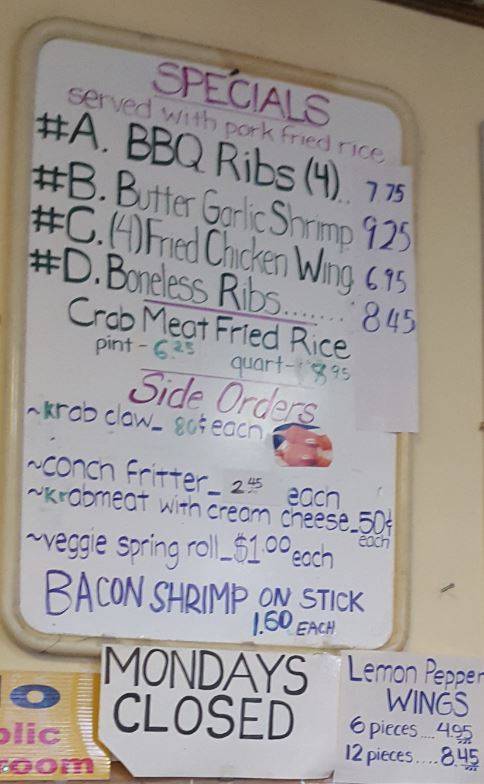 SPECIALS
served with pork fried rice
#A. BBQ Ribs (4).. 7 75
#B. Butter Garlic Shrimp 925
#C. (4) Fried Chicken Wing 695
#D. Boneless Ribs....... 845
Crab Meat Fried Rice
pint - 6.25 quart - 8 95
Side Orders
~krab claw_ 80¢ each
~conch fritter_ 2 45 each
~krabmeat with cream cheese_50¢
each
~veggie spring roll_$1.00 each
BACON SHRIMP ON STICK
1.60 EACH
MONDAYS
CLOSED
Lemon Pepper
WINGS
6 pieces....4.95
12 pieces....8.45
O
blic
room